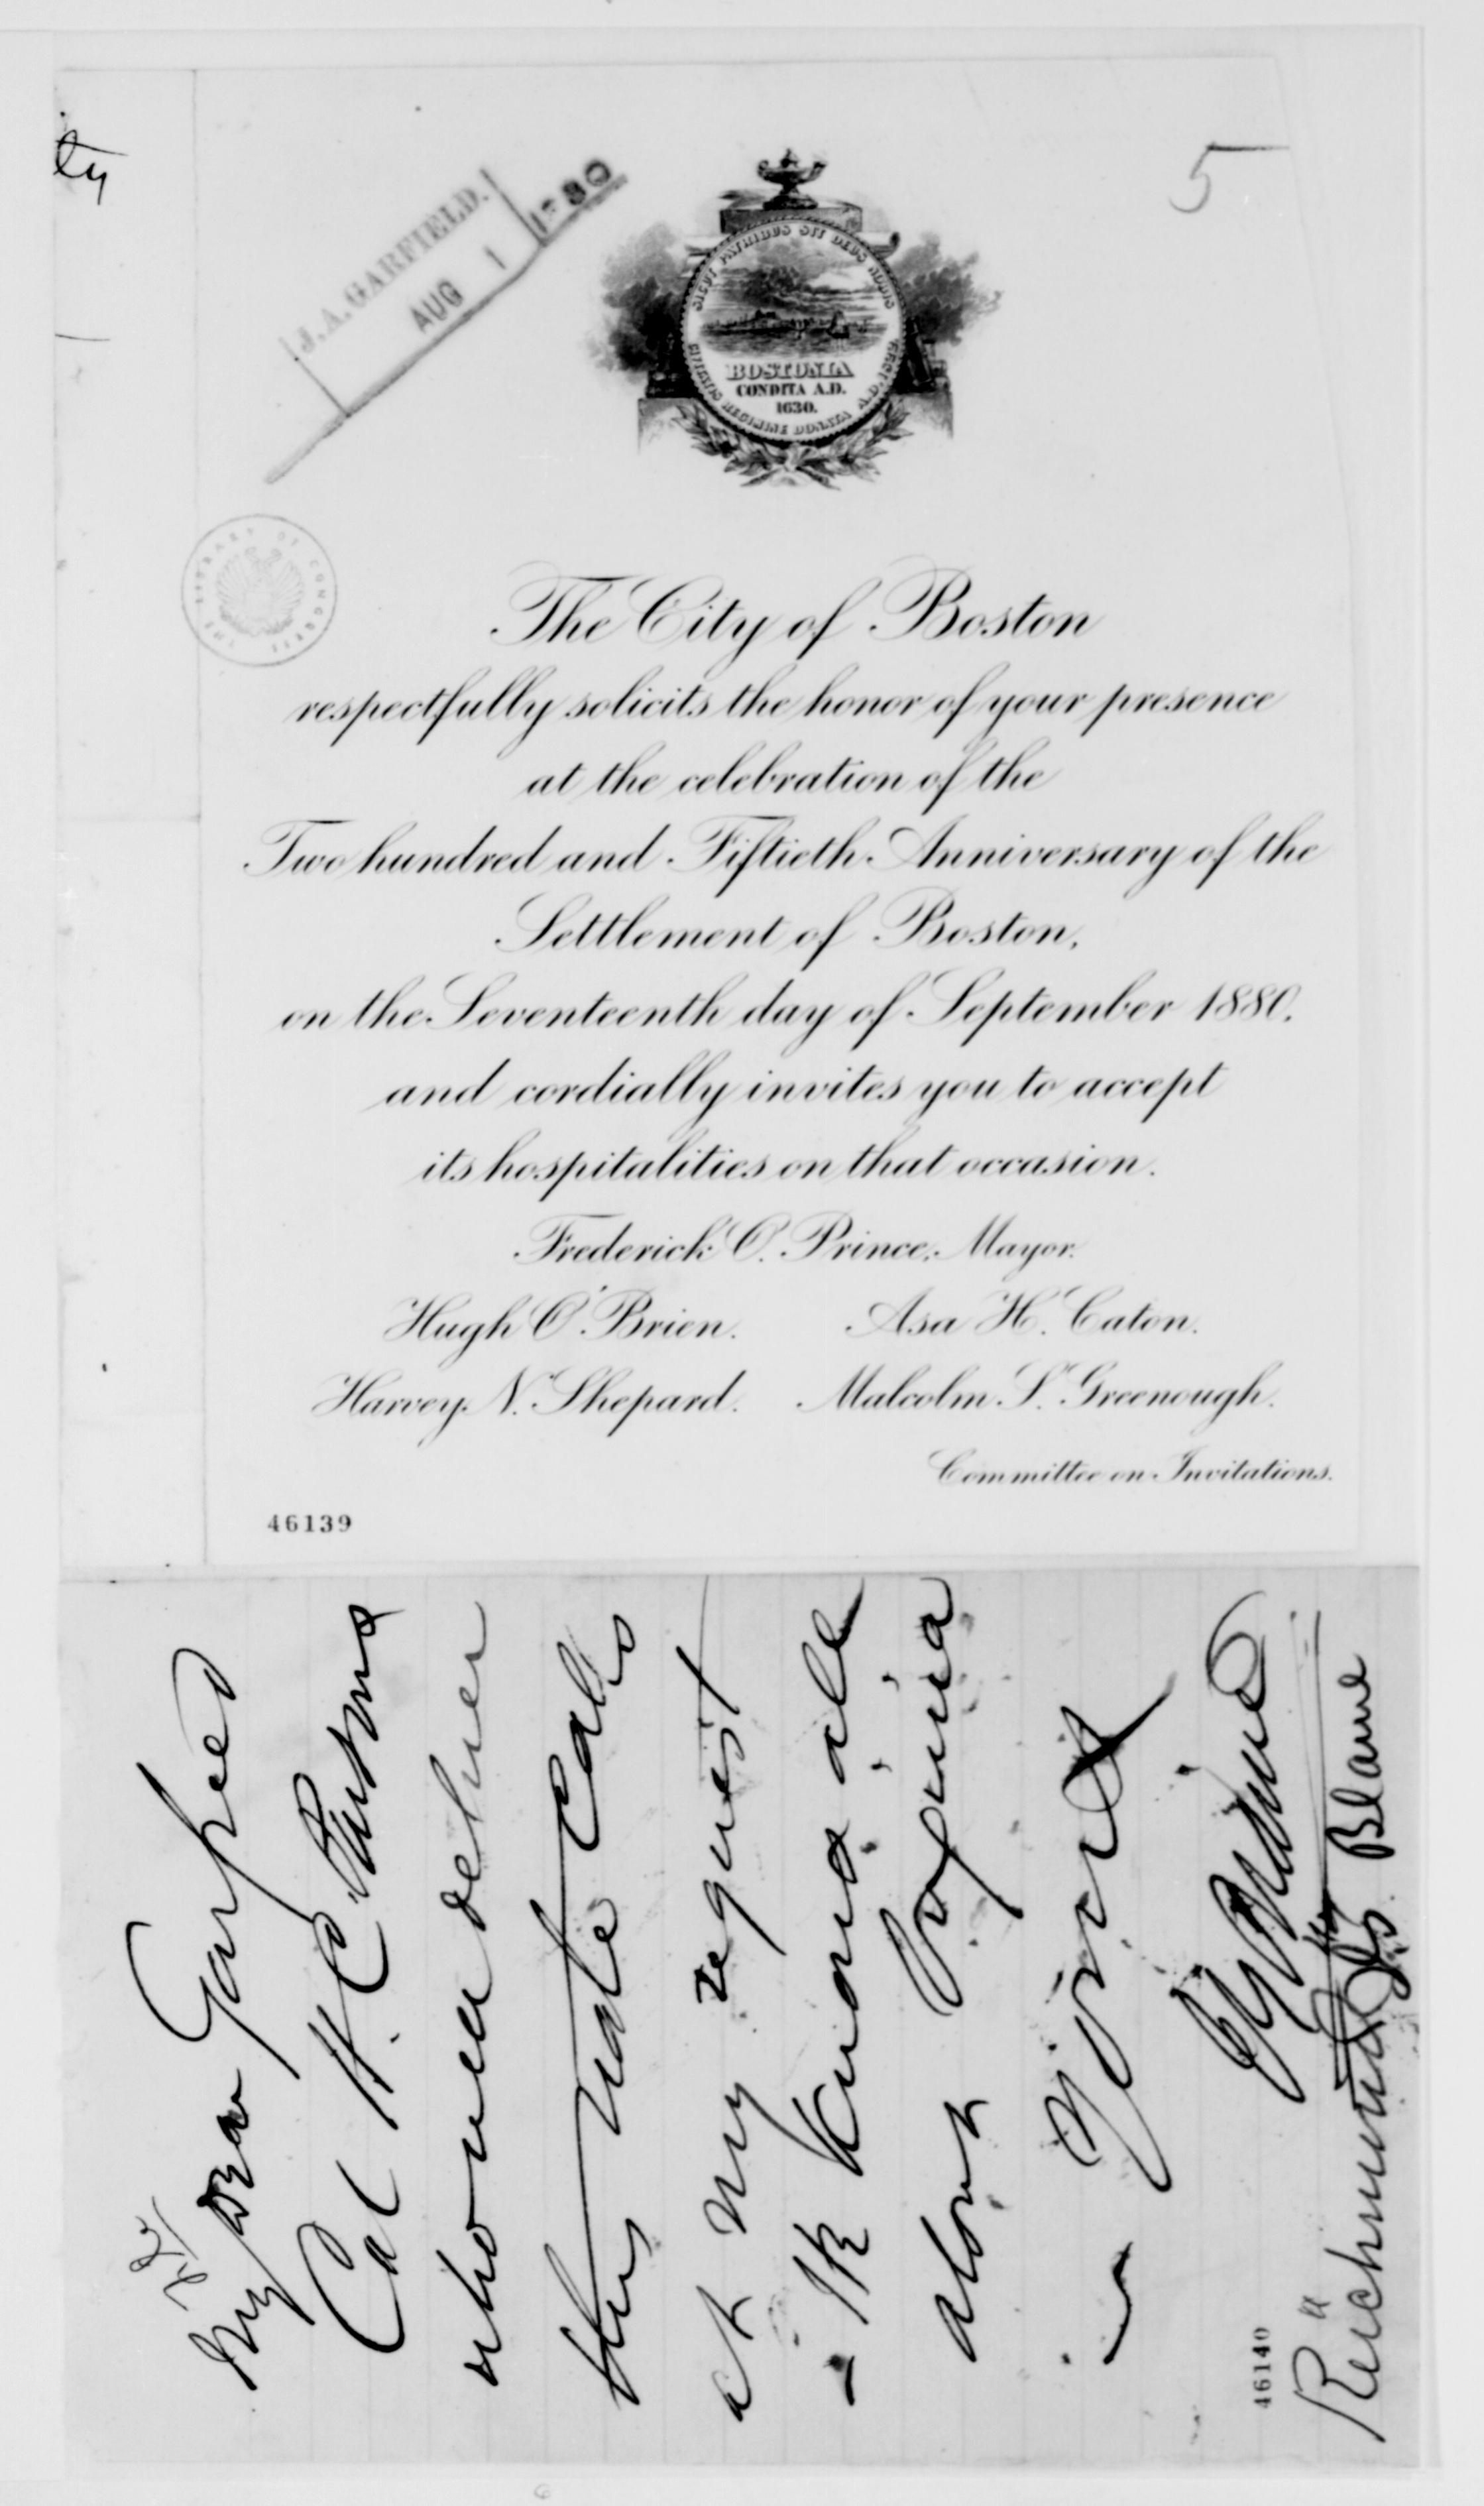 ty
5
J. A. GARFIELD.
AUG 1 1880
SICUT PATRIBUS SIT DEUS NOBIS
BOSTONIA
CONDITA A.D.
1630.
CIVITATIS REGIMINE DONATA A.D. 1822
THE LIBRARY OF CONGRESS
The City of Boston
respectfully solicits the honor of your presence
at the celebration of the
Two hundred and Fiftieth Anniversary of the
Settlement of Boston,
on the Seventeenth day of September 1880,
and cordially invites you to accept
its hospitalities on that occasion.
Frederick O. Prince, Mayor.
Hugh O'Brien. Asa H. Caton.
Harvey N. Shepard. Malcolm S. Greenough.
Committee on Invitations.
46139
My Dear Garfield
Col H. C.
who will deliver
this note calls
at my request
Knows all
about Virginia
Yours
Blaine
46140